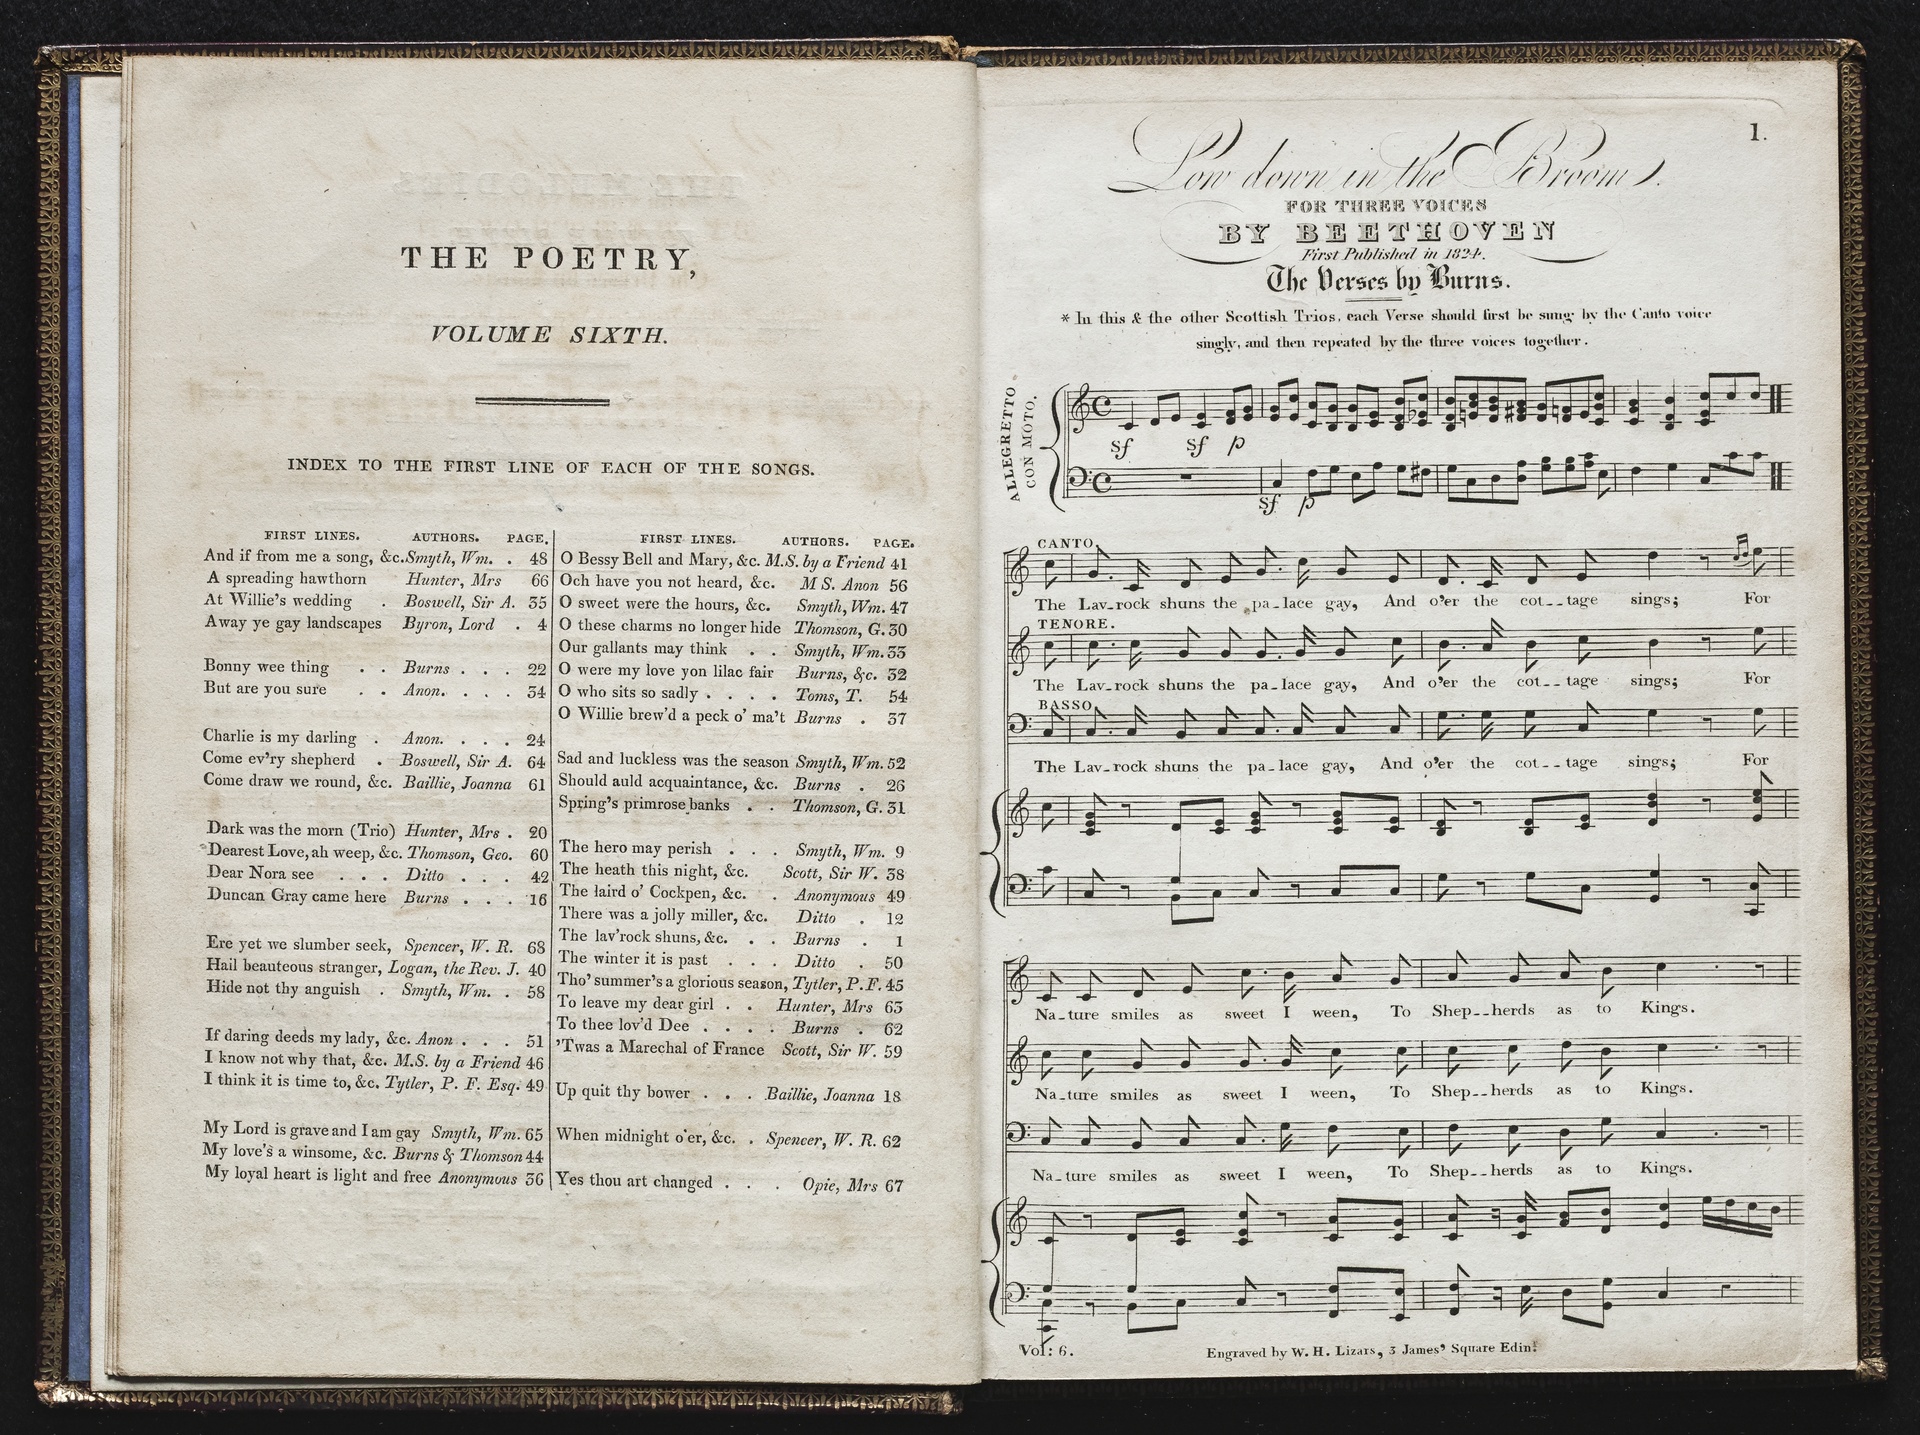 THE POETRY,
VOLUME SIXTH.
INDEX TO THE FIRST LINE OF EACH OF THE SONGS.
FIRST LINES. AUTHORS. PAGE.
And if from me a song, &c. Smyth, Wm. . 48
A spreading hawthorn Hunter, Mrs 66
At Willie's wedding . Boswell, Sir A. 35
Away ye gay landscapes Byron, Lord . 4
Bonny wee thing . . Burns . . . 22
But are you sure . . Anon. . . . 34
Charlie is my darling . Anon. . . . 24
Come ev'ry shepherd . Boswell, Sir A. 64
Come draw we round, &c. Baillie, Joanna 61
Dark was the morn (Trio) Hunter, Mrs . 20
Dearest Love, ah weep, &c. Thomson, Geo. 60
Dear Nora see . . . Ditto . . . 42
Duncan Gray came here Burns . . . 16
Ere yet we slumber seek, Spencer, W. R. 68
Hail beauteous stranger, Logan, the Rev. J. 40
Hide not thy anguish . Smyth, Wm. . 58
If daring deeds my lady, &c. Anon . . . 51
I know not why that, &c. M.S. by a Friend 46
I think it is time to, &c. Tytler, P. F. Esq. 49
My Lord is grave and I am gay Smyth, Wm. 65
My love's a winsome, &c. Burns & Thomson 44
My loyal heart is light and free Anonymous 36
FIRST LINES. AUTHORS. PAGE.
O Bessy Bell and Mary, &c. M.S. by a Friend 41
Och have you not heard, &c. M S. Anon 56
O sweet were the hours, &c. Smyth, Wm. 47
O these charms no longer hide Thomson, G. 30
Our gallants may think . . Smyth, Wm. 33
O were my love yon lilac fair Burns, &c. 32
O who sits so sadly . . . . Toms, T. 54
O Willie brew'd a peck o' ma't Burns . 37
Sad and luckless was the season Smyth, Wm. 52
Should auld acquaintance, &c. Burns . 26
Spring's primrose banks . . Thomson, G. 31
The hero may perish . . . Smyth, Wm. 9
The heath this night, &c. Scott, Sir W. 38
The laird o' Cockpen, &c. . Anonymous 49
There was a jolly miller, &c. Ditto . 12
The lav'rock shuns, &c. . . Burns . 1
The winter it is past . . . Ditto . 50
Tho' summer's a glorious season, Tytler, P. F. 45
To leave my dear girl . . Hunter, Mrs 63
To thee lov'd Dee . . . . Burns . 62
'Twas a Marechal of France Scott, Sir W. 59
Up quit thy bower . . . Baillie, Joanna 18
When midnight o'er, &c. . Spencer, W. R. 62
Yes thou art changed . . . Opie, Mrs 67
1.
Low down in the Broom.
FOR THREE VOICES
BY BEETHOVEN
First Published in 1824.
The Verses by Burns.
* In this & the other Scottish Trios, each Verse should first be sung by the Canto voice
singly, and then repeated by the three voices together.
ALLEGRETTO
CON MOTO.
sf sf p
sf p
CANTO.
The Lav-rock shuns the pa-lace gay, And o'er the cot--tage sings; For
TENORE.
The Lav-rock shuns the pa-lace gay, And o'er the cot--tage sings; For
BASSO.
The Lav-rock shuns the pa-lace gay, And o'er the cot--tage sings; For
Na-ture smiles as sweet I ween, To Shep--herds as to Kings.
Na-ture smiles as sweet I ween, To Shep--herds as to Kings.
Na-ture smiles as sweet I ween, To Shep--herds as to Kings.
Vol: 6.
Engraved by W. H. Lizars, 3 James' Square Edinr.